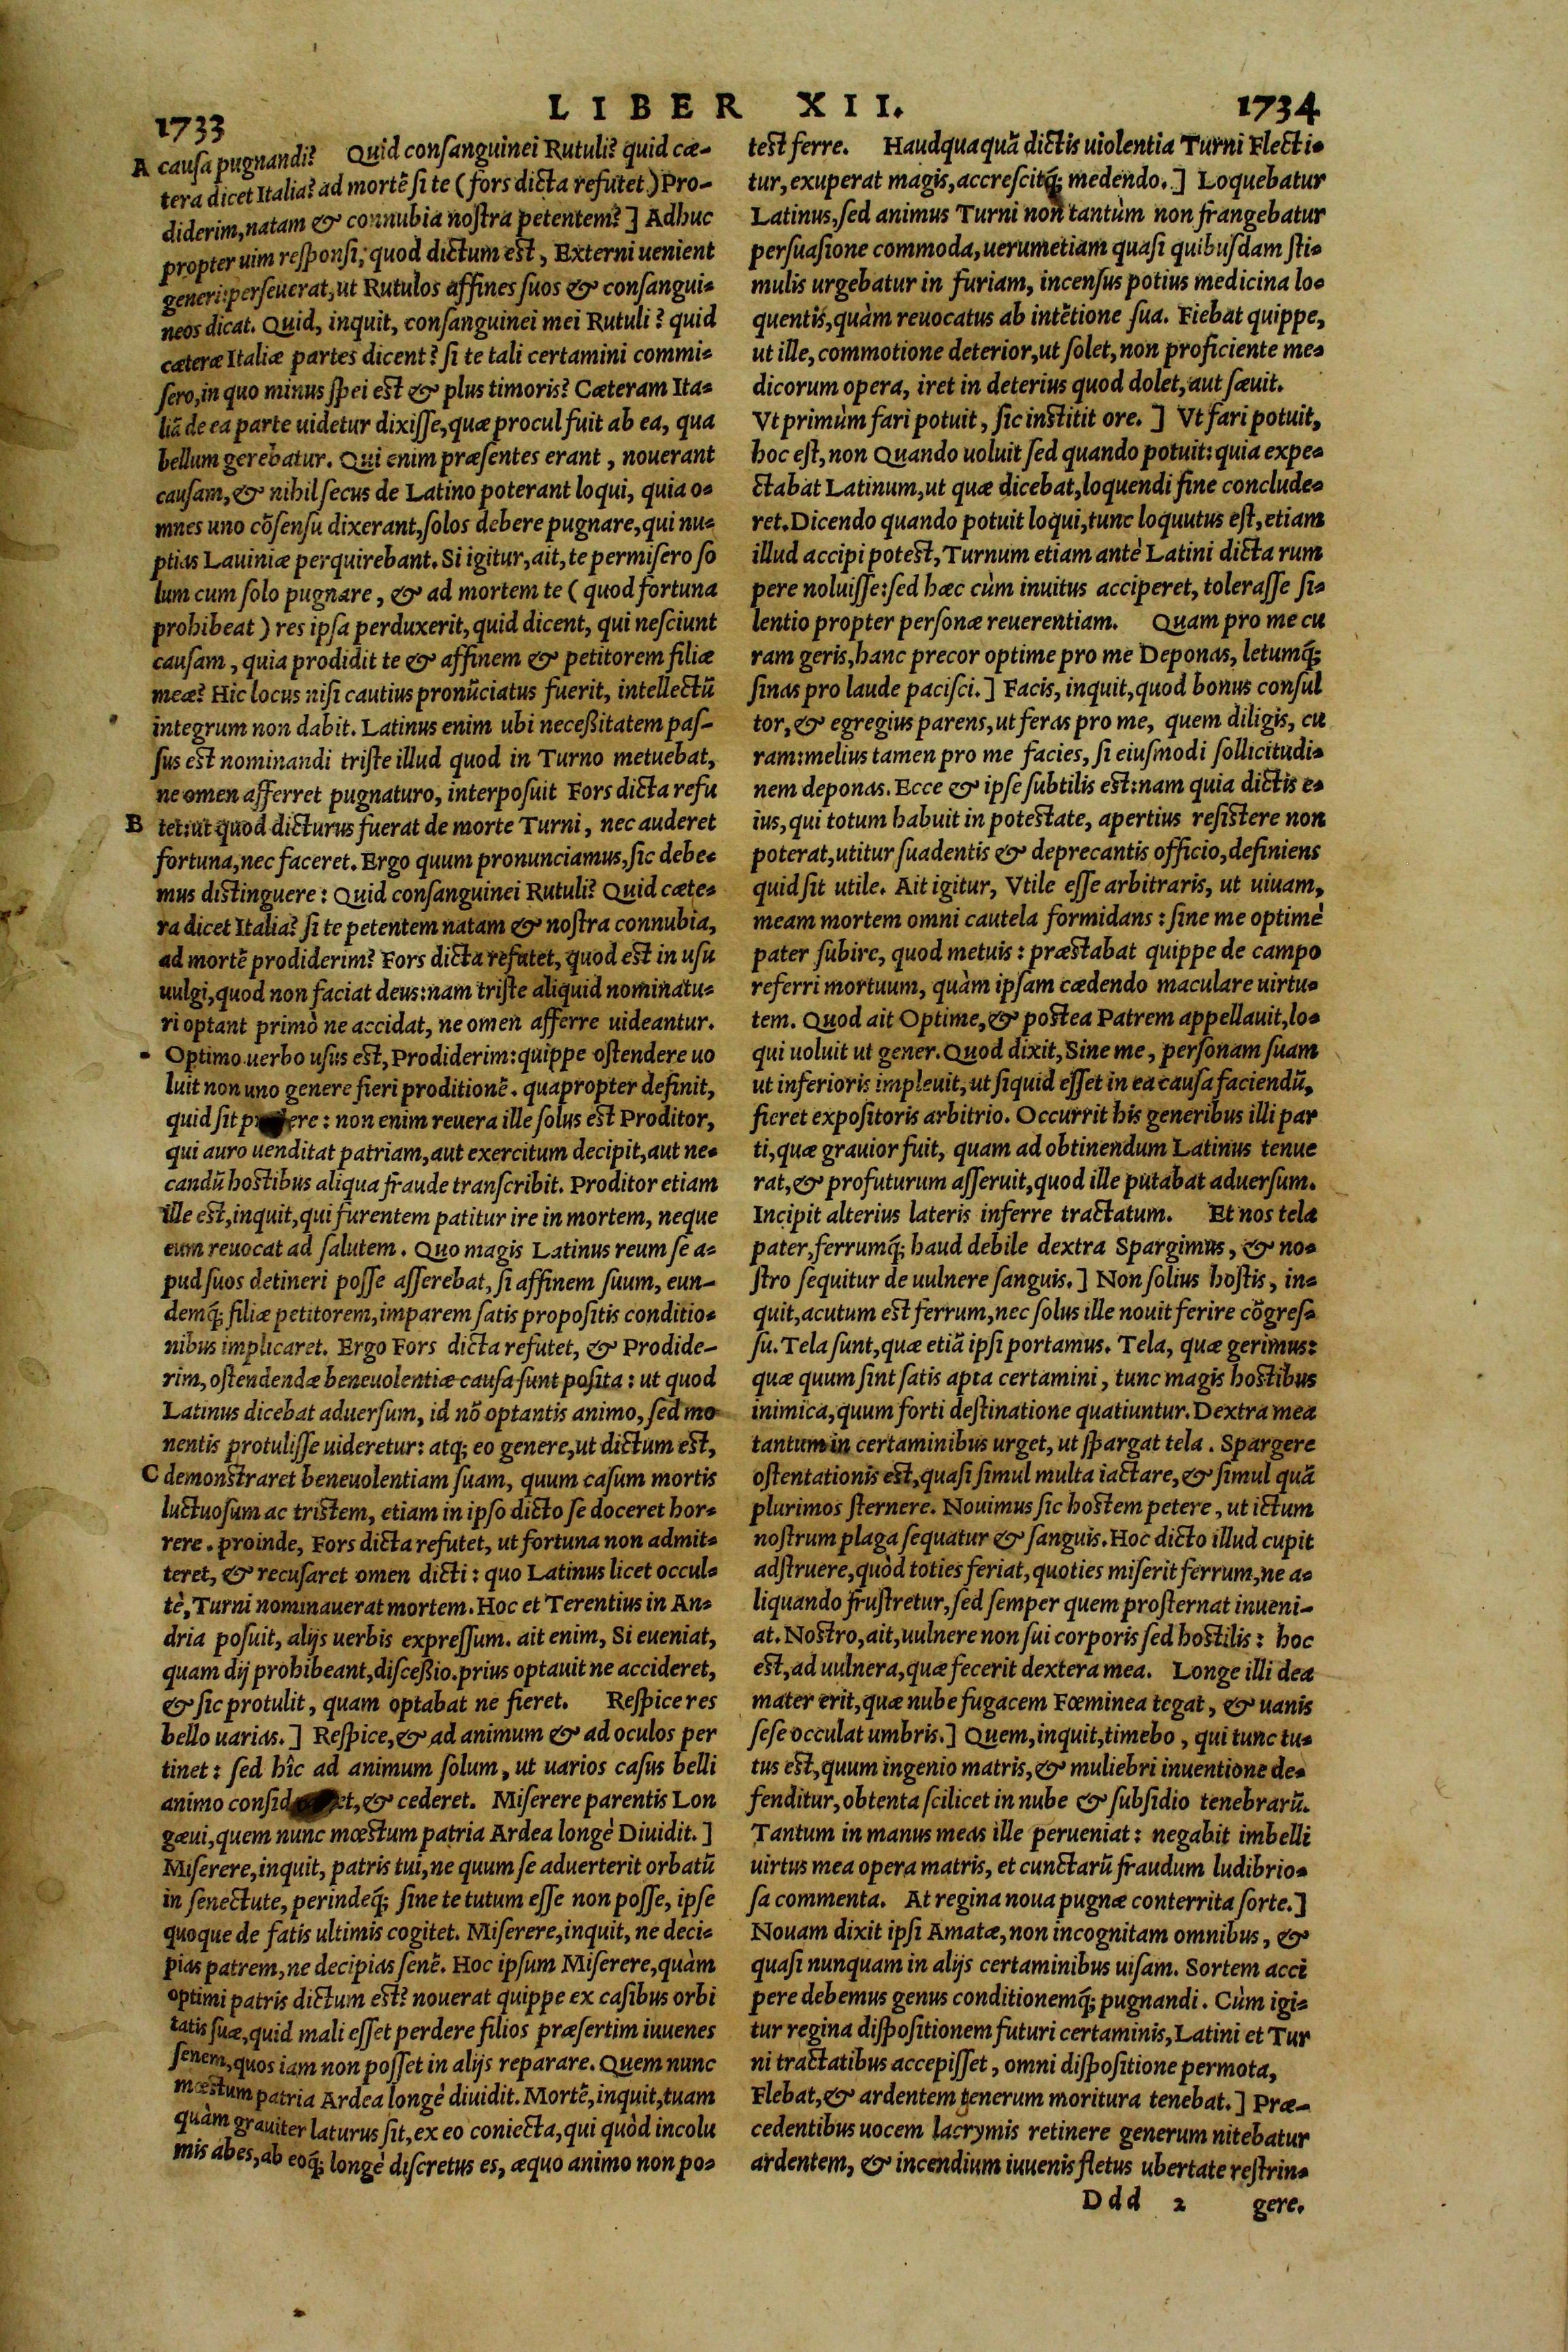 LIBER XII.
1733
A causa pugnandi? Quid consanguinei Rutuli? quid cæ-
tera dicet Italia? ad mortē si te (fors dicta refutet) Pro-
diderim, natam & connubia nostra petentem? ] Adhuc
propter uim responsi, quod dictum est, Externi uenient
generi: perseuerat, ut Rutulos affines suos & consangui-
neos dicat. Quid, inquit, consanguinei mei Rutuli? quid
cæteræ Italiæ partes dicent? si te tali certamini commi-
sero, in quo minus spei est & plus timoris? Cæteram Ita-
liā de ea parte uidetur dixisse, quæ procul fuit ab ea, qua
bellum gerebatur. Qui enim præsentes erant, nouerant
causam, & nihil secus de Latino poterant loqui, quia o-
mnes uno cōsensu dixerant, solos debere pugnare, qui nu-
ptias Lauiniæ perquirebant. Si igitur, ait, te permisero so
lum cum solo pugnare, & ad mortem te (quod fortuna
prohibeat) res ipsa perduxerit, quid dicent, qui nesciunt
causam, quia prodidit te & affinem & petitorem filiæ
meæ? Hic locus nisi cautius pronūciatus fuerit, intellectū
integrum non dabit. Latinus enim ubi neceßitatem pas-
sus est nominandi triste illud quod in Turno metuebat,
ne omen afferret pugnaturo, interposuit Fors dicta refu
B tet: ut quod dicturus fuerat de morte Turni, nec auderet
fortuna, nec faceret. Ergo quum pronunciamus, sic debe-
mus distinguere: Quid consanguinei Rutuli? Quid cæte-
ra dicet Italia? si te petentem natam & nostra connubia,
ad mortē prodiderim? Fors dicta refutet, quod est in usu
uulgi, quod non faciat deus: nam triste aliquid nominatu-
ri optant primò ne accidat, ne omen afferre uideantur.
Optimo uerbo usus est, Prodiderim: quippe ostendere uo
luit non uno genere fieri proditionē. quapropter definit,
quid sit p ere: non enim reuera ille solus est Proditor,
qui auro uenditat patriam, aut exercitum decipit, aut ne-
candū hostibus aliqua fraude transcribit. Proditor etiam
ille est, inquit, qui furentem patitur ire in mortem, neque
eum reuocat ad salutem. Quo magis Latinus reum se a-
pud suos detineri posse asserebat, si affinem suum, eun-
demq́; filiæ petitorem, imparem satis propositis conditio-
nibus implicaret. Ergo Fors dicta refutet, & Prodide-
rim, ostendendæ beneuolentiæ causa sunt posita: ut quod
Latinus dicebat aduersum, id nō optantis animo, sed mo
nentis protulisse uideretur: atq; eo genere, ut dictum est,
C demonstraret beneuolentiam suam, quum casum mortis
luctuosum ac tristem, etiam in ipso dicto se doceret hor-
rere. proinde, Fors dicta refutet, ut fortuna non admit-
teret, & recusaret omen dicti: quo Latinus licet occul-
tè, Turni nominauerat mortem. Hoc et Terentius in An-
dria posuit, alijs uerbis expressum. ait enim, Si eueniat,
quam dij prohibeant, disceßio. prius optauit ne accideret,
& sic protulit, quam optabat ne fieret. Respice res
bello uarias. ] Respice, & ad animum & ad oculos per
tinet: sed hîc ad animum solum, ut uarios casus belli
animo consid et, & cederet. Miserere parentis Lon
gæui, quem nunc mœstum patria Ardea longè Diuidit. ]
Miserere, inquit, patris tui, ne quum se aduerterit orbatū
in senectute, perindeq́; sine te tutum esse non posse, ipse
quoque de fatis ultimis cogitet. Miserere, inquit, ne deci-
pias patrem, ne decipias senē. Hoc ipsum Miserere, quàm
optimi patris dictum est? nouerat quippe ex casibus orbi
tatis suæ, quid mali esset perdere filios præsertim iuuenes
senem, quos iam non posset in alijs reparare. Quem nunc
mœstum patria Ardea longè diuidit. Mortē, inquit, tuam
quàm grauiter laturus sit, ex eo coniecta, qui quòd incolu
mis abes, ab eoq́; longè discretus es, æquo animo non po-
1734
test ferre. Haudquaquā dictis uiolentia Turni Flecti-
tur, exuperat magis, accrescitq́; medendo. ] Loquebatur
Latinus, sed animus Turni non tantùm non frangebatur
persuasione commoda, uerumetiam quasi quibusdam sti-
mulis urgebatur in furiam, incensus potius medicina lo-
quentis, quàm reuocatus ab intētione sua. Fiebat quippe,
ut ille, commotione deterior, ut solet, non proficiente me-
dicorum opera, iret in deterius quod dolet, aut sæuit.
Vt primùm fari potuit, sic institit ore. ] Vt fari potuit,
hoc est, non Quando uoluit sed quando potuit: quia expe-
ctabat Latinum, ut quæ dicebat, loquendi fine conclude-
ret. Dicendo quando potuit loqui, tunc loquutus est, etiam
illud accipi potest, Turnum etiam antè Latini dicta rum
pere noluisse: sed hæc cùm inuitus acciperet, tolerasse si-
lentio propter personæ reuerentiam. Quam pro me cu
ram geris, hanc precor optime pro me Deponas, letumq́;
sinas pro laude pacisci. ] Facis, inquit, quod bonus consul
tor, & egregius parens, ut feras pro me, quem diligis, cu
ram: melius tamen pro me facies, si eiusmodi sollicitudi-
nem deponas. Ecce & ipse subtilis est: nam quia dictis e-
ius, qui totum habuit in potestate, apertius resistere non
poterat, utitur suadentis & deprecantis officio, definiens
quid sit utile. Ait igitur, Vtile esse arbitraris, ut uiuam,
meam mortem omni cautela formidans: sine me optimè
pater subire, quod metuis: præstabat quippe de campo
referri mortuum, quàm ipsam cædendo maculare uirtu-
tem. Quod ait Optime, & postea Patrem appellauit, lo-
qui uoluit ut gener. Quod dixit, Sine me, personam suam
ut inferioris impleuit, ut siquid esset in ea causa faciendū,
fieret expositoris arbitrio. Occurrit his generibus illi par
ti, quæ grauior fuit, quam ad obtinendum Latinus tenue
rat, & profuturum asseruit, quod ille putabat aduersum.
Incipit alterius lateris inferre tractatum. Et nos tela
pater, ferrumq́; haud debile dextra Spargimus, & no-
stro sequitur de uulnere sanguis. ] Non solius hostis, in-
quit, acutum est ferrum, nec solus ille nouit ferire cōgres-
su. Tela sunt, quæ etiā ipsi portamus. Tela, quæ gerimus:
quæ quum sint satis apta certamini, tunc magis hostibus
inimica, quum forti destinatione quatiuntur. Dextra mea
tantum in certaminibus urget, ut spargat tela. Spargere
ostentationis est, quasi simul multa iactare, & simul quā
plurimos sternere. Nouimus sic hostem petere, ut ictum
nostrum plaga sequatur & sanguis. Hoc dicto illud cupit
adstruere, quòd toties feriat, quoties miserit ferrum, ne a-
liquando frustretur, sed semper quem prosternat inueni-
at. Nostro, ait, uulnere non sui corporis sed hostilis: hoc
est, ad uulnera, quæ fecerit dextera mea. Longe illi dea
mater erit, quæ nube fugacem Fœminea tegat, & uanis
sese occulat umbris. ] Quem, inquit, timebo, qui tunc tu-
tus est, quum ingenio matris, & muliebri inuentione de-
fenditur, obtenta scilicet in nube & subsidio tenebrarū.
Tantum in manus meas ille perueniat: negabit imbelli
uirtus mea opera matris, et cunctarū fraudum ludibrio-
sa commenta. At regina noua pugnæ conterrita sorte. ]
Nouam dixit ipsi Amatæ, non incognitam omnibus, &
quasi nunquam in alijs certaminibus uisam. Sortem acci
pere debemus genus conditionemq́; pugnandi. Cùm igi-
tur regina dispositionem futuri certaminis, Latini et Tur
ni tractatibus accepisset, omni dispositione permota,
Flebat, & ardentem generum moritura tenebat. ] Præ-
cedentibus uocem lacrymis retinere generum nitebatur
ardentem, & incendium iuuenis fletus ubertate restrin-
Ddd 2 gere.